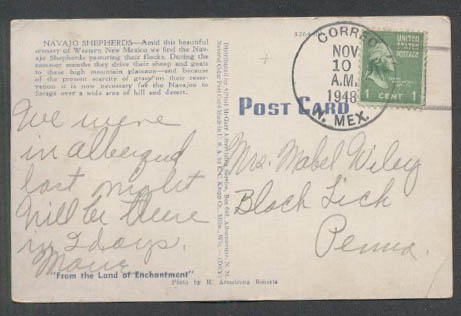 NAVAJO SHEPHERDS—Amid this beautiful
scenery of Western New Mexico we find the Nav-
ajo Shepherds pasturing their flocks. During the
summer months they drive their sheep and goats
to these high mountain plateaus—and because
of the present scarcity of grass on their reser-
vation it is now necessary for the Navajos to
forage over a wide area of hill and desert.
We were
in alberqed
last night
Will be there
in 2 days.
"From the Land of Enchantment"
Photo by H. Armstrong Roberts
POST CARD
CORREO
NOV
10
A.M.
1948
N. MEX.
1 CENT 1
Mrs. Mabel Wiley
Black Lick
Penna.